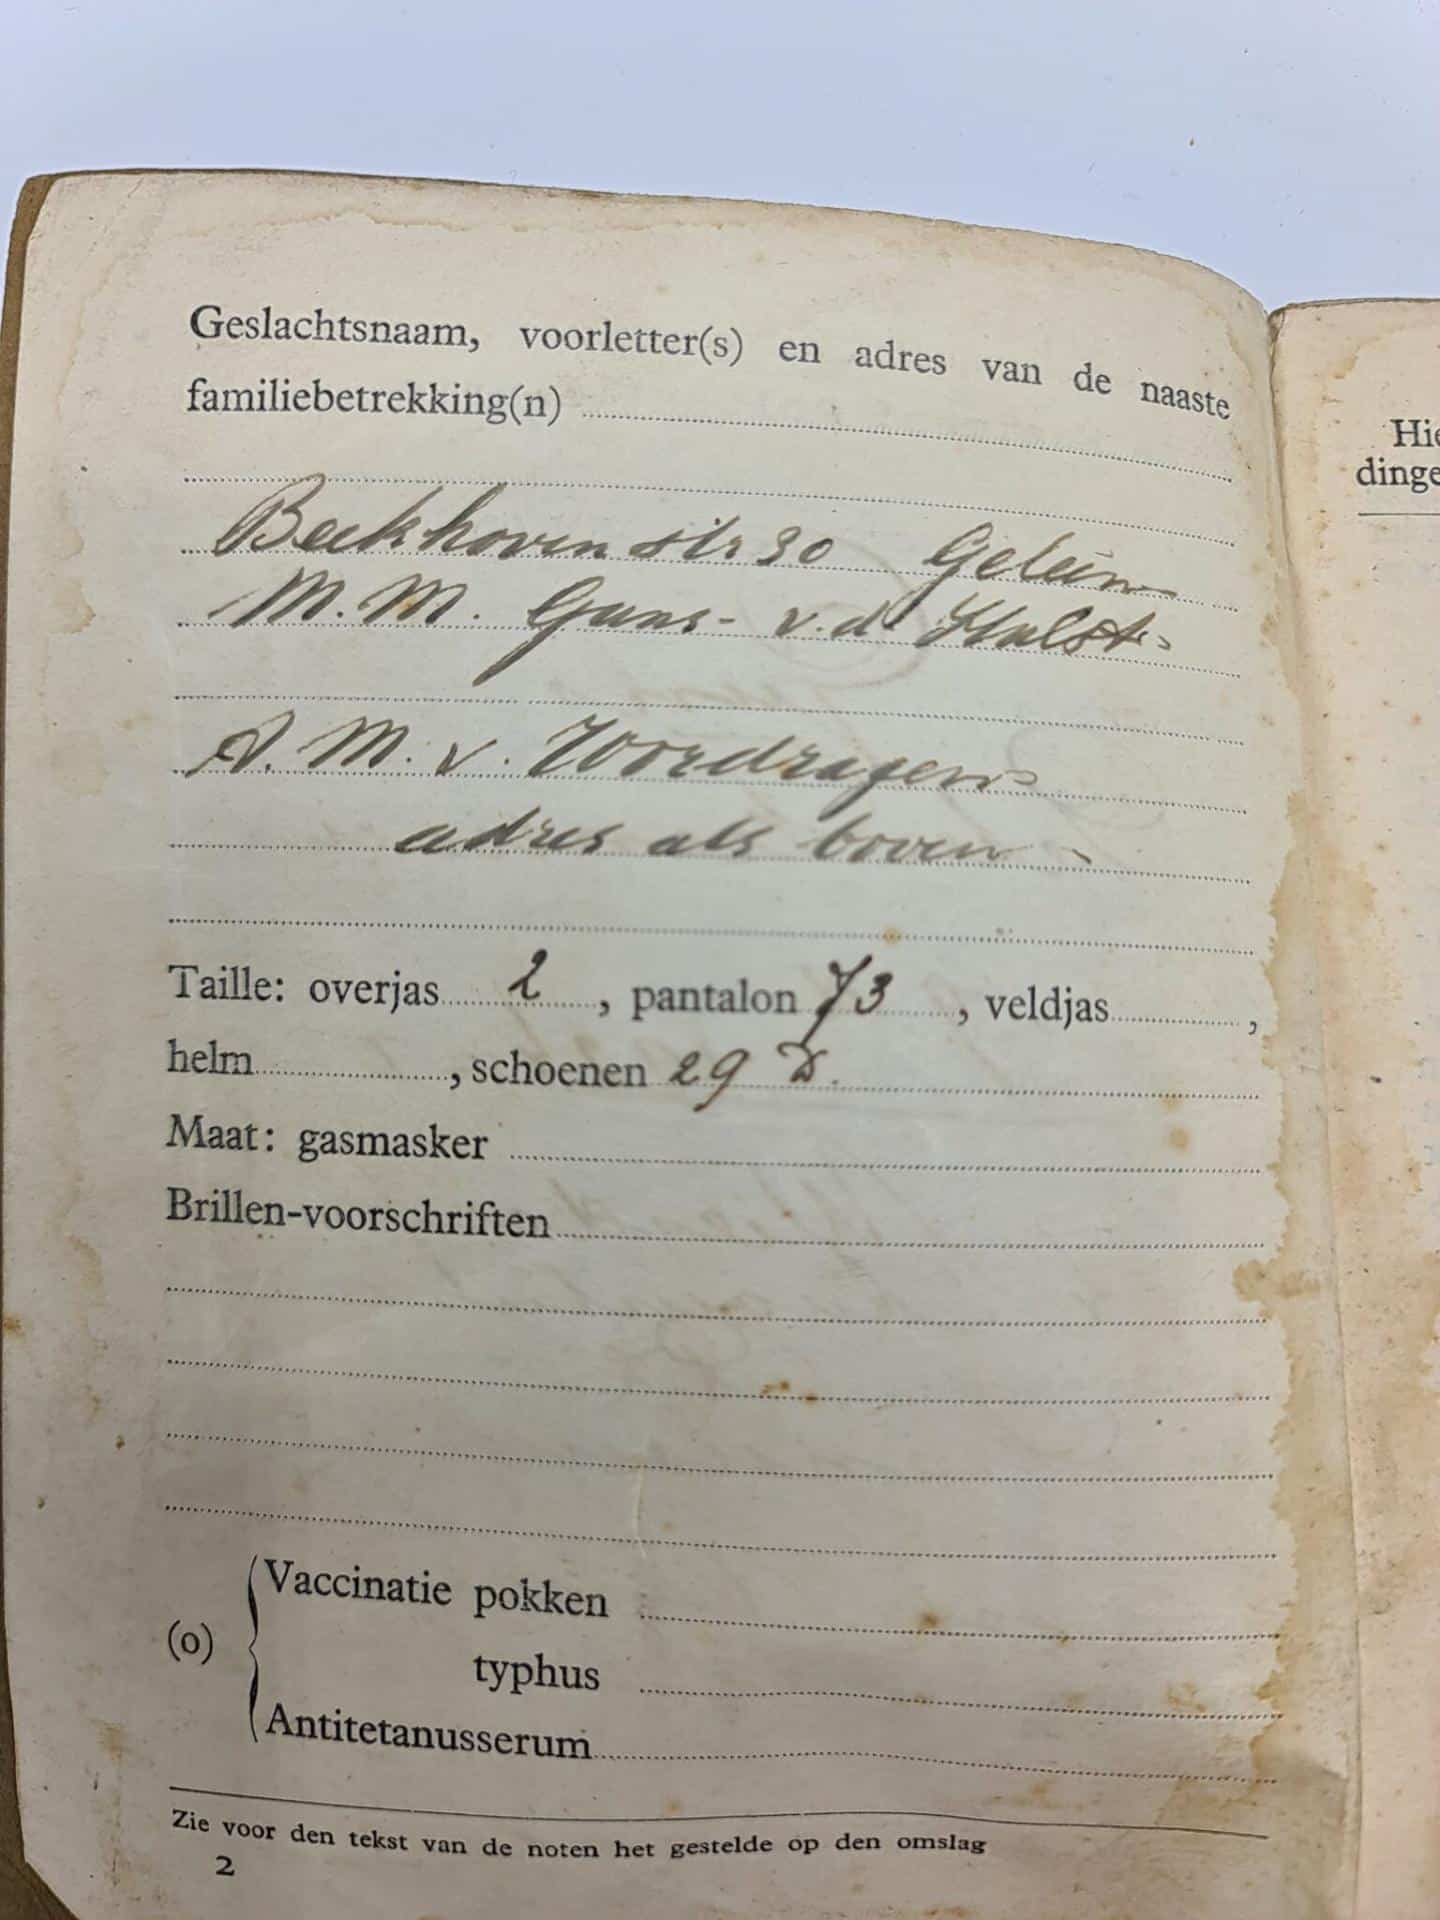 Geslachtsnaam, voorletter(s) en adres van de naaste
familiebetrekking(n)
Beekhovenstr 30 Geleen
M. M. Gans - v. d. Hulst
A. M. v. Woordragen
adres als boven
Taille: overjas 2, pantalon 73, veldjas,
helm, schoenen 29 D.
Maat: gasmasker
Brillen-voorschriften
(o) Vaccinatie pokken
typhus
Antitetanusserum
Zie voor den tekst van de noten het gestelde op den omslag
2
Hie
dinge